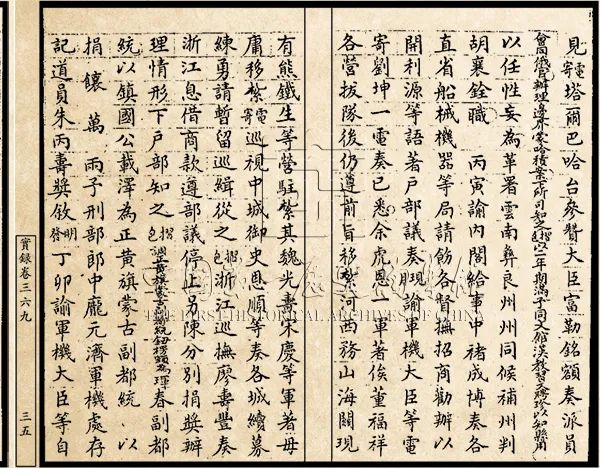 見電寄塔爾巴哈台參贊大臣富勒銘額奏派員
會同俄官辦理邊界積案所司知之摺包以二年期滿予同文館漢教習以知縣用
以任性妄為革署雲南彝良州州同候補州判
胡襄銓職 丙寅諭內閣給事中褚成博奏各
直省船械機器等局請飭各督撫招商勸辦以
開利源等語著戶部議奏現諭軍機大臣等電
寄劉坤一電奏已悉余虎恩一軍著俟董福祥
各營拔隊後仍遵前旨移紮河西務山海關現
有熊鐵生等營駐紮其魏光燾宋慶等軍著毋
庸移紮電寄巡視中城御史恩順等奏各城續募
練勇請暫留巡緝從之摺包浙江巡撫廖壽豐奏
浙江息借商款遵部議停止另陳分別捐獎辦
理情形下戶部知之摺包調正黃旗蒙古副都統鈕楞額為琿春副都
統以鎮國公載澤為正黃旗蒙古副都統 以
捐鑲萬兩予刑部郎中龐元濟軍機處存
記道員朱丙壽獎敘明發丁卯諭軍機大臣等自
實録卷三六九
三五
THE FIRST HISTORICAL ARCHIVES OF CHINA